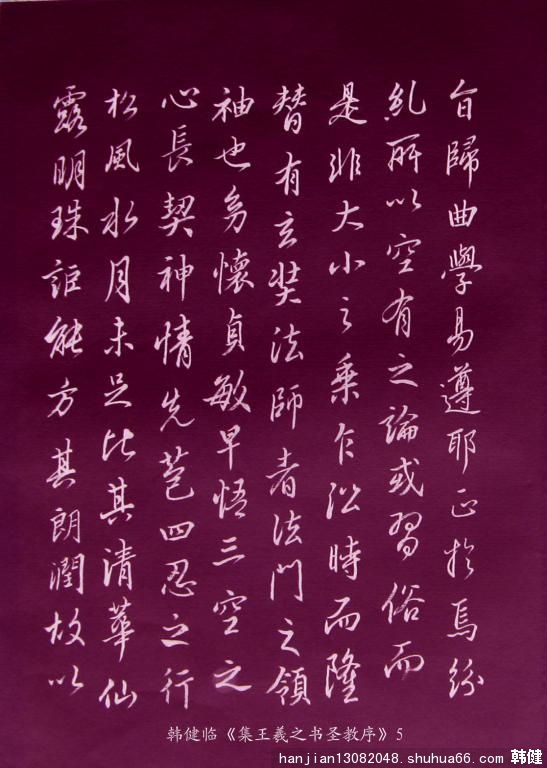 旨歸曲學易遵耶正於焉紛
糺所以空有之論或習俗而
是非大小之乘乍沿時而隆
替有玄奘法師者法門之領
袖也幼懷貞敏早悟三空之
心長契神情先苞四忍之行
松風水月未足比其清華仙
露明珠詎能方其朗潤故以
韩健临《集王羲之书圣教序》5
hanjian13082048.shuhua66.com/韩健